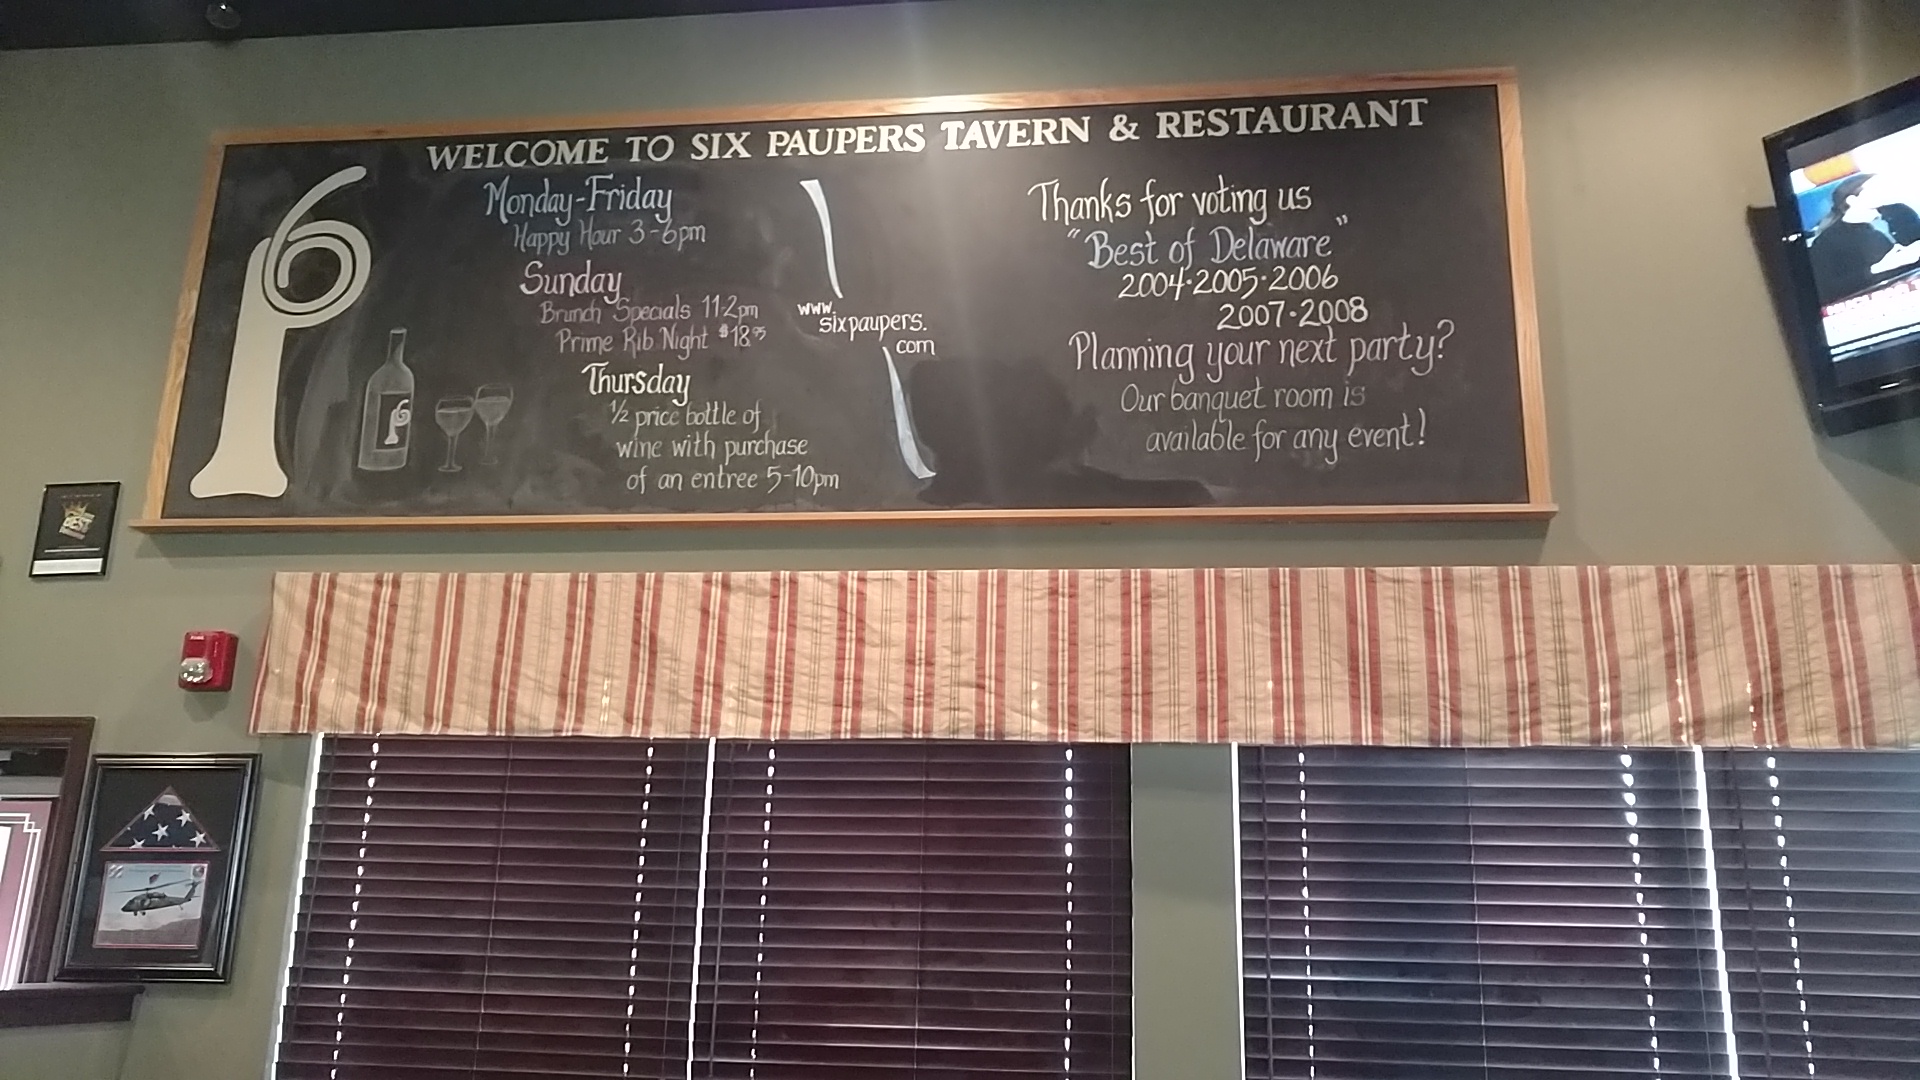 WELCOME TO SIX PAUPERS TAVERN & RESTAURANT
6P
Monday-Friday
Happy Hour 3-6pm
Sunday
Brunch Specials 11-2pm
Prime Rib Night $18.95
Thursday
1/2 price bottle of
wine with purchase
of an entree 5-10pm
www.
sixpaupers.
com
Thanks for voting us
"Best of Delaware"
2004·2005·2006
2007·2008
Planning your next party?
Our banquet room is
available for any event!
BEST